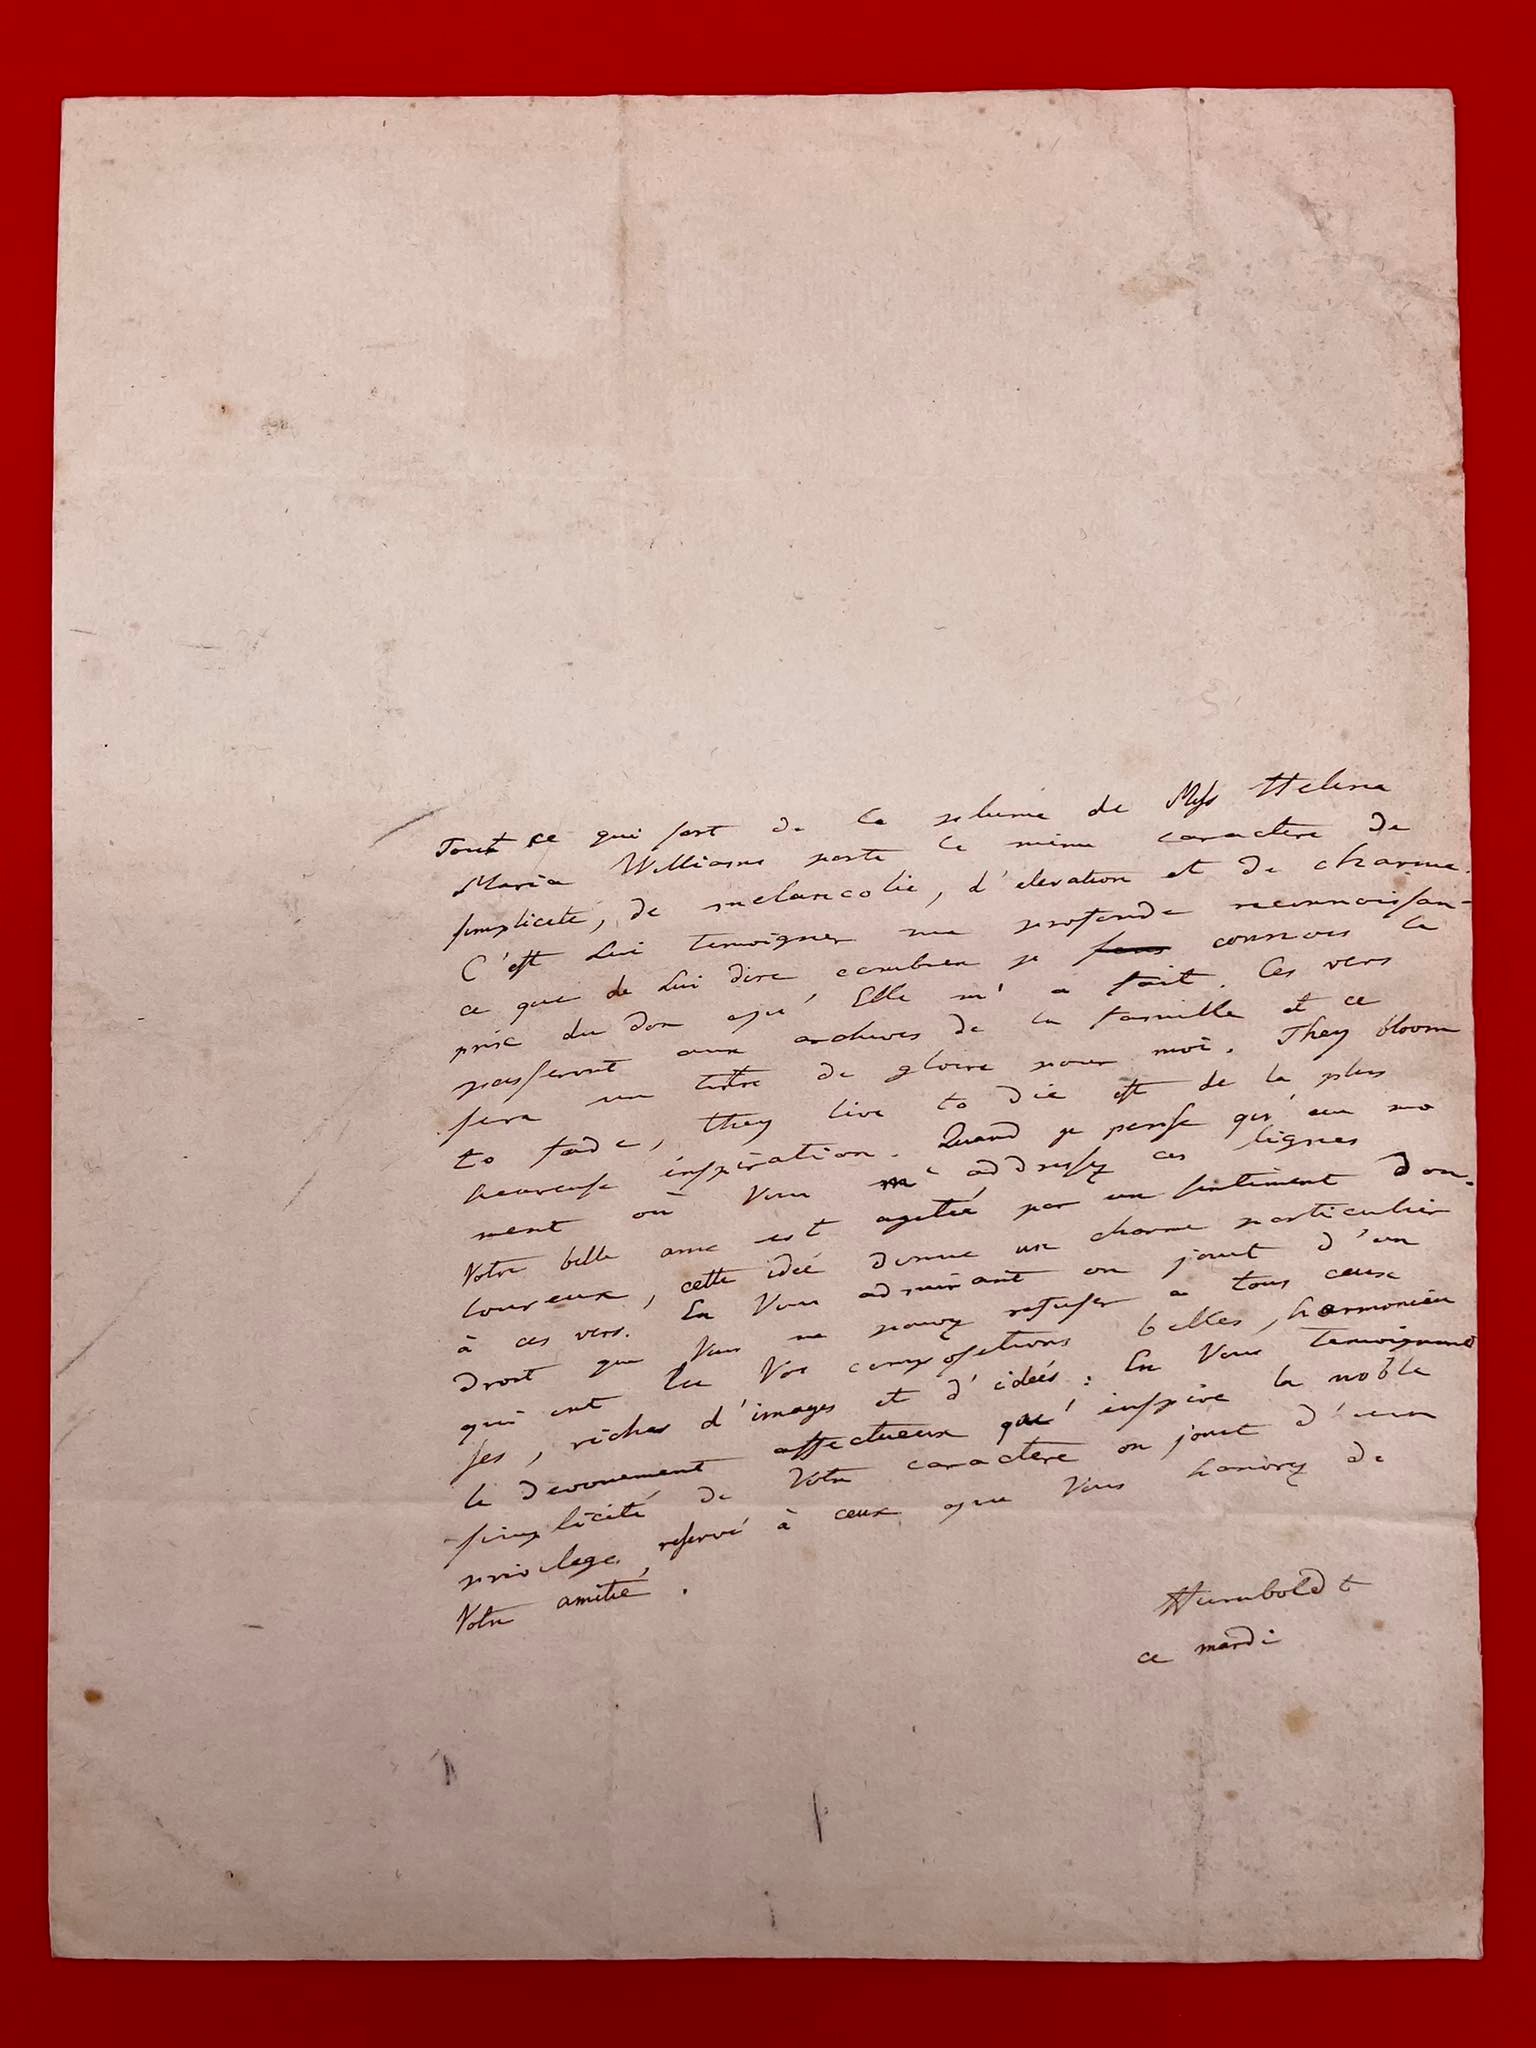 Tout ce qui sort de la plume de Miss Helena
Maria Williams porte le même caractere de
simplicité, de melancolie, d'elevation et de charme.
C'est Lui temoigner ma profonde reconnoissan-
ce que de Lui dire combien je sens connois le
prix du don qu'Elle m'a fait. Ces vers
passeront aux archives de la famille et ce
sera un titre de gloire pour moi. They bloom
to fade, they live to die est de la plus
heureuse inspiration. Quand je pense qu'au mo
ment où Vous m'addressez ces lignes
Votre belle ame est agitée par un sentiment dou-
loureux, cette idée donne un charme particulier
à ces vers. En Vous admirant on jouit d'un
droit que Vous ne pouvez refuser a tous ceux
qui ont lu Vos compositions belles, harmonieu
ses, riches d'images et d'idées: En Vous temoignant
le devouement affectueux qu'inspire la noble
simplicité de Votre caractere on jouit d'un
privilege, reservé à ceux que Vous honorez de
Votre amitié.
Humboldt
ce mardi